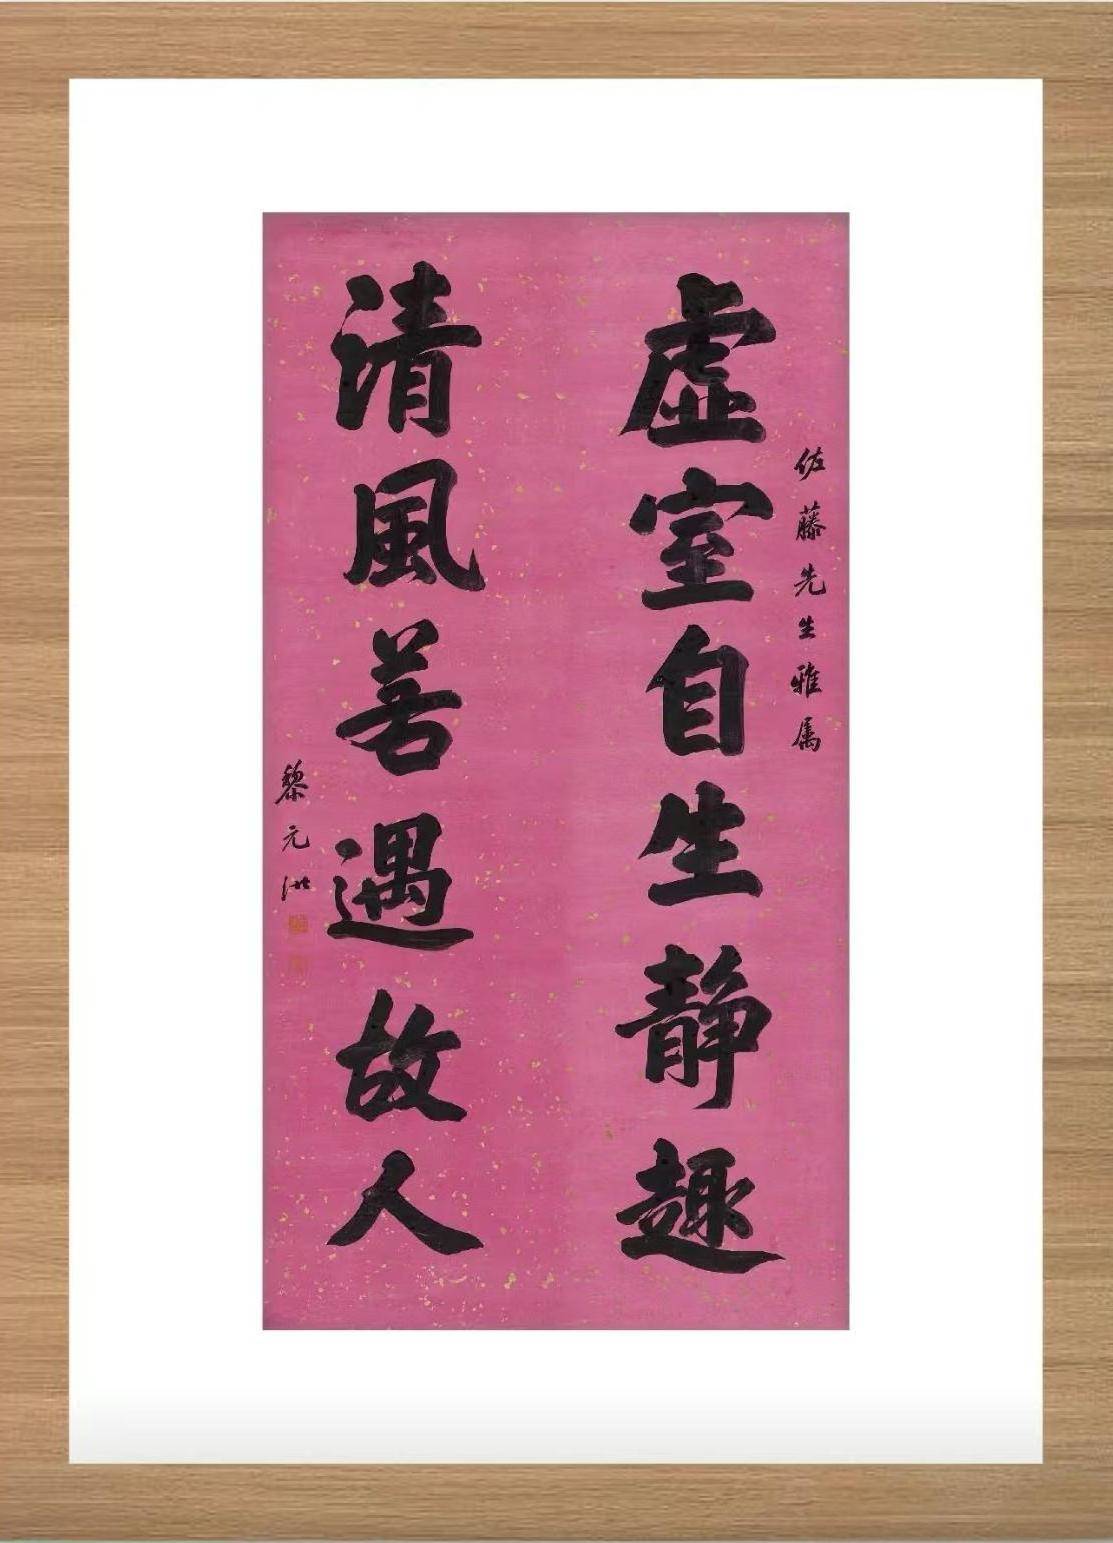 佐藤先生雅属
虚室自生静趣
清風若遇故人
黎元洪